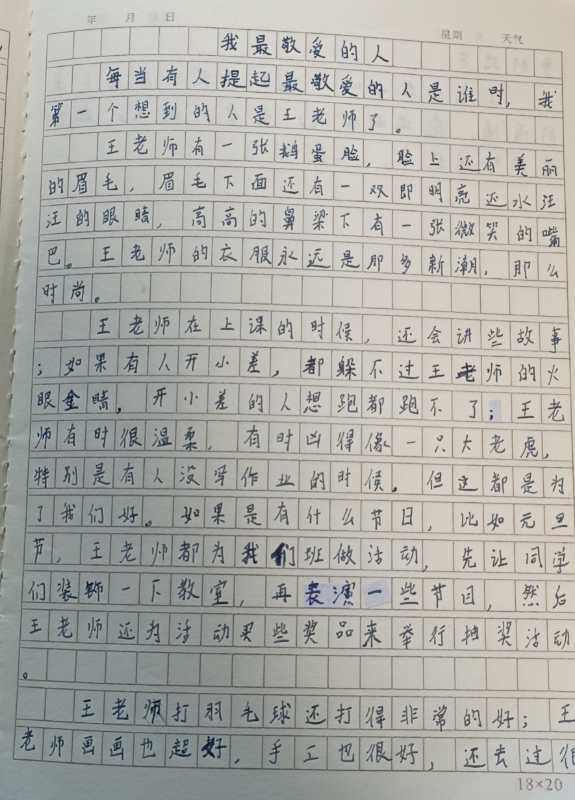 年 月 日 星期 天气
我最敬爱的人
每当有人提起最敬爱的人是谁时，我
第一个想到的人是王老师了。
王老师有一张鹅蛋脸，脸上还有美丽
的眉毛，眉毛下面还有一双即明亮还水汪
汪的眼睛，高高的鼻梁下有一张微笑的嘴
巴。王老师的衣服永远是那多新潮，那么
时尚。
王老师在上课的时候，还会讲些故事
；如果有人开小差，都躲不过王老师的火
眼金睛，开小差的人想跑都跑不了；王老
师有时很温柔，有时凶得像一只大老虎，
特别是有人没写作业的时候。但这都是为
了我们好。如果是有什么节日，比如元旦
节，王老师都为我们班做活动，先让同学
们装饰一下教室，再表演一些节目，然后
王老师还为活动买些奖品来举行抽奖活动
。
王老师打羽毛球还打得非常的好；王
老师画画也超好，手工也很好，还去过很
18×20